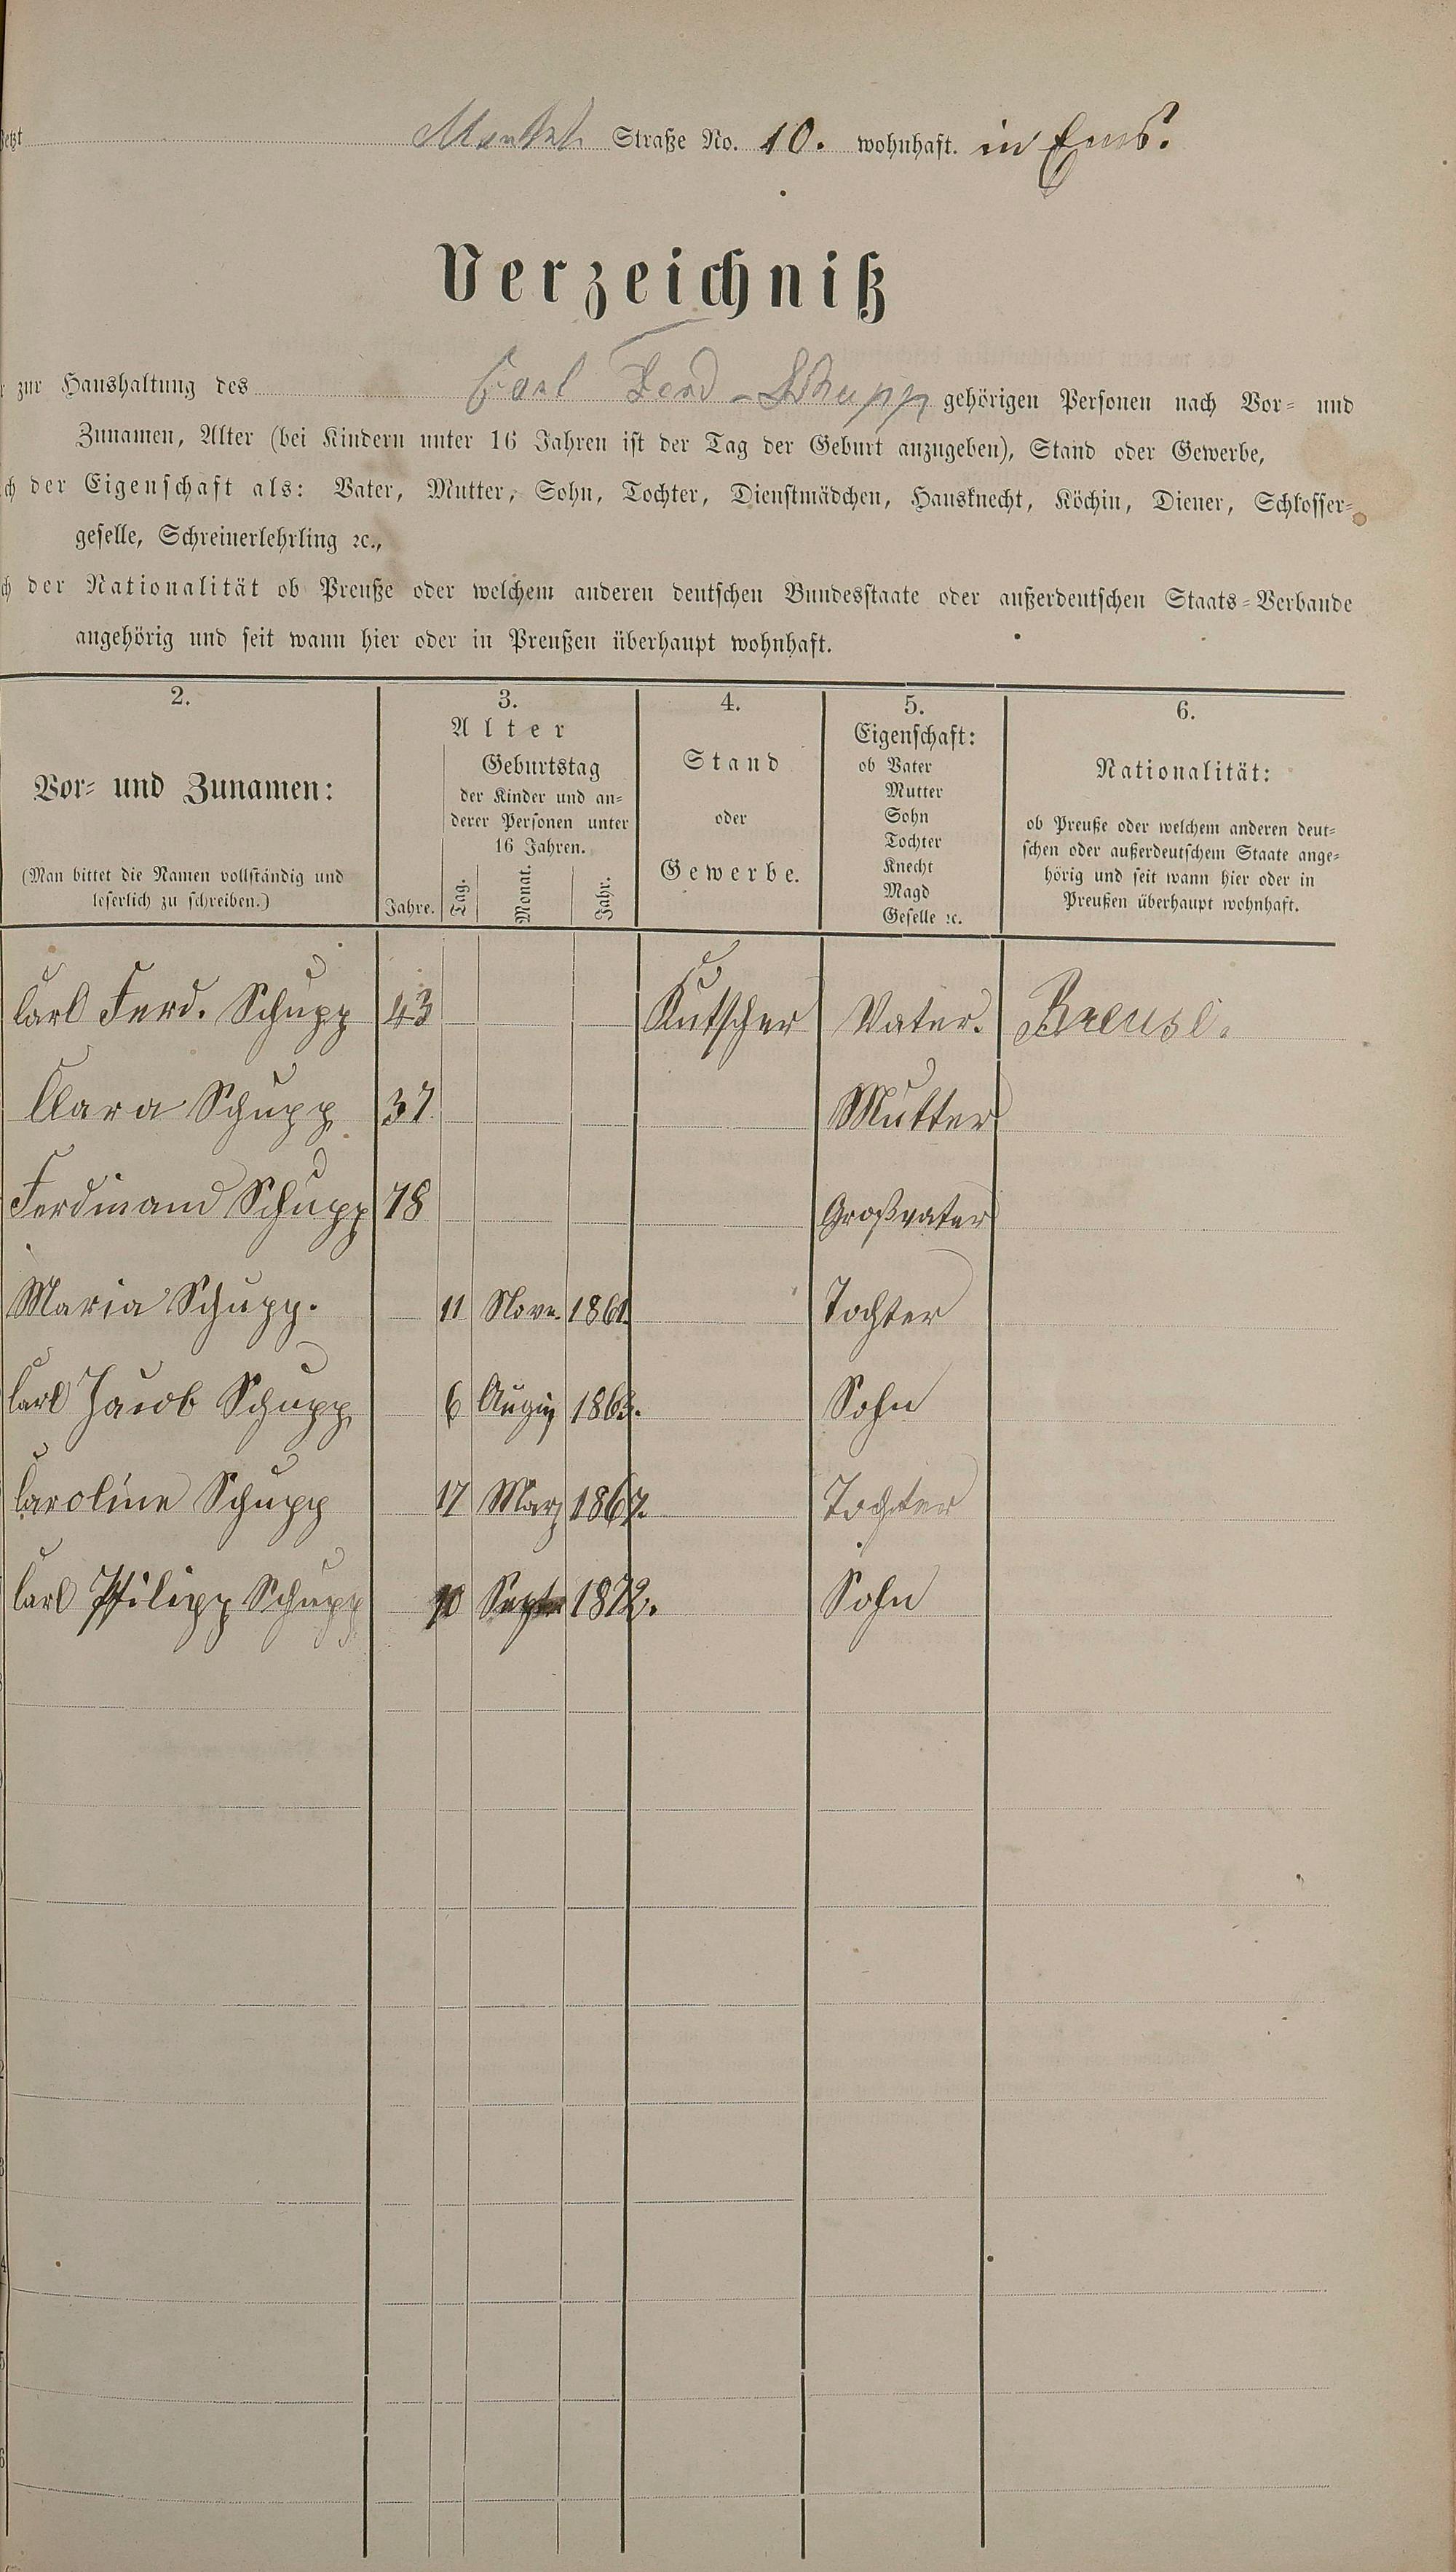 jetzt Markt Straße No. 10. wohnhaft. in Ems.
Verzeichniß
zur Haushaltung des Carl Ferd. Schupp gehörigen Personen nach Vor- und
Zunamen, Alter (bei Kindern unter 16 Jahren ist der Tag der Geburt anzugeben), Stand oder Gewerbe,
der Eigenschaft als: Vater, Mutter, Sohn, Tochter, Dienstmädchen, Hausknecht, Köchin, Diener, Schlosser-
geselle, Schreinerlehrling ꝛc.,
der Nationalität ob Preuße oder welchem anderen deutschen Bundesstaate oder außerdeutschen Staats-Verbande
angehörig und seit wann hier oder in Preußen überhaupt wohnhaft.
2.
Vor- und Zunamen:
(Man bittet die Namen vollständig und
leserlich zu schreiben.)
3.
Alter
Geburtstag
der Kinder und an-
derer Personen unter
16 Jahren.
Jahre. Tag. Monat. Jahr.
4.
Stand
oder
Gewerbe.
5.
Eigenschaft:
ob Vater
Mutter
Sohn
Tochter
Knecht
Magd
Geselle ꝛc.
6.
Nationalität:
ob Preuße oder welchem anderen deut-
schen oder außerdeutschem Staate ange-
hörig und seit wann hier oder in
Preußen überhaupt wohnhaft.
Carl Ferd. Schupp 43 Kutscher Vater. Breuse.
Clara Schupp 37 Mutter
Ferdinand Schupp 78 Großvater
Maria Schupp. 11 Nove. 1861. Tochter
Carl Jacob Schupp 6 1863. Sohn
Caroline Schupp 17 Marz 1867. Tochter
Carl Philipp Schupp 10 Septe 1872. Sohn